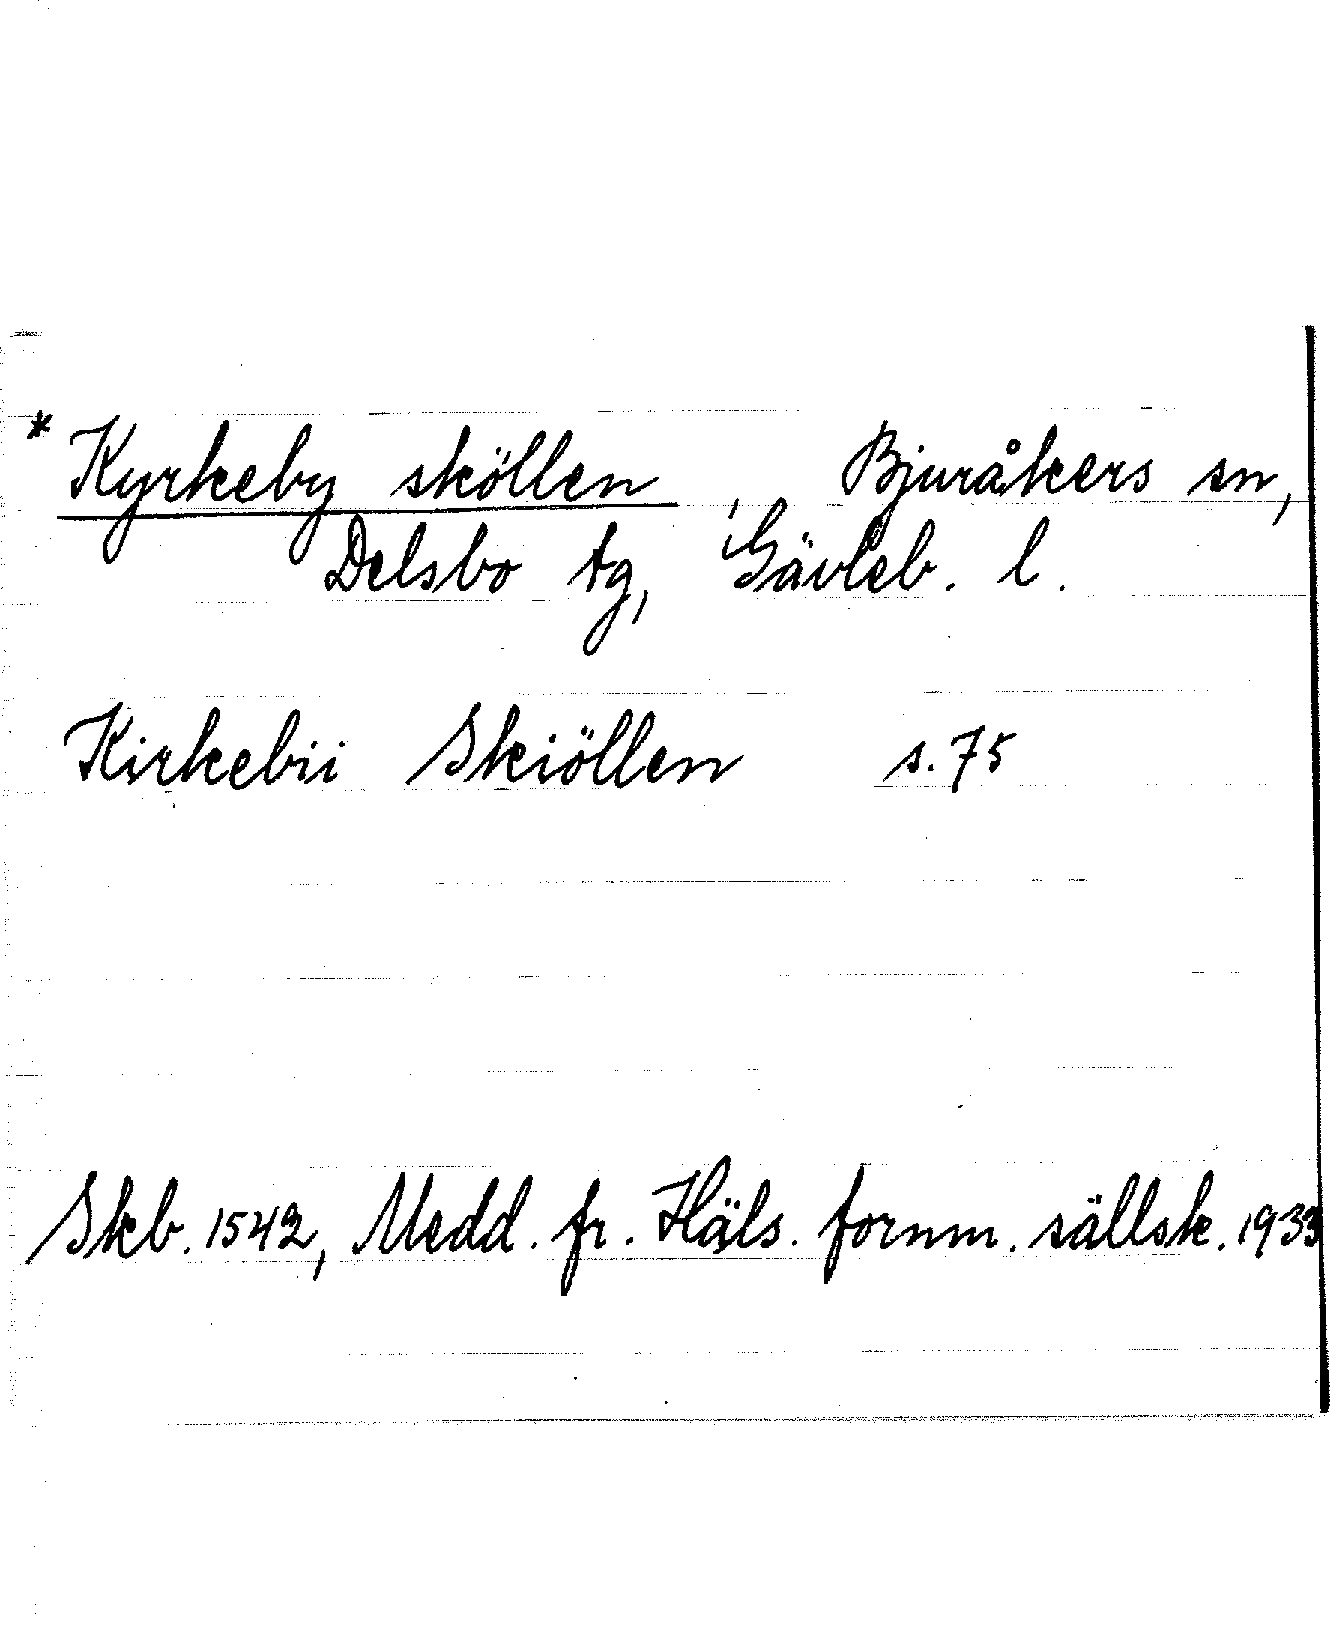 * Kyrkeby sköllen, Bjuråkers sn,
Delsbo tg, Gävleb. l.
Kirkebii Skiöllen s. 75
Skb. 1542, Medd. fr. Häls. fornm. sällsk. 1933